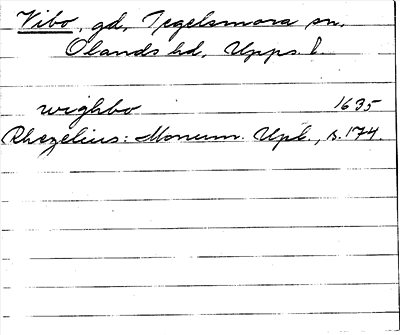 Vibo, gd, Tegelsmora sn,
Ölands hd, Upps. l.
wighbo 1635
Rhezelius: Monum. Upl., s. 174.